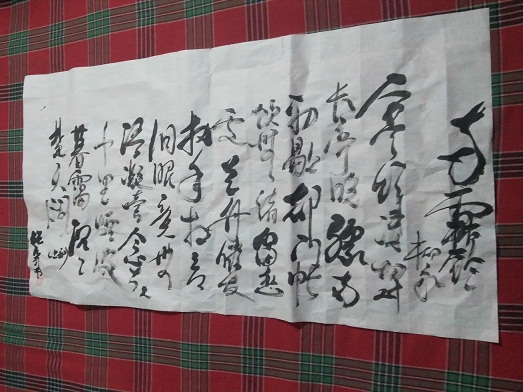 雨霖鈴
柳永
寒蝉凄切對
長亭晚驟雨
初歇都门帐
飲無緒留恋
處兰舟催发
执手相看
泪眼竟無
语凝噎念去々
千里烟波
暮霭沉々
楚天阔